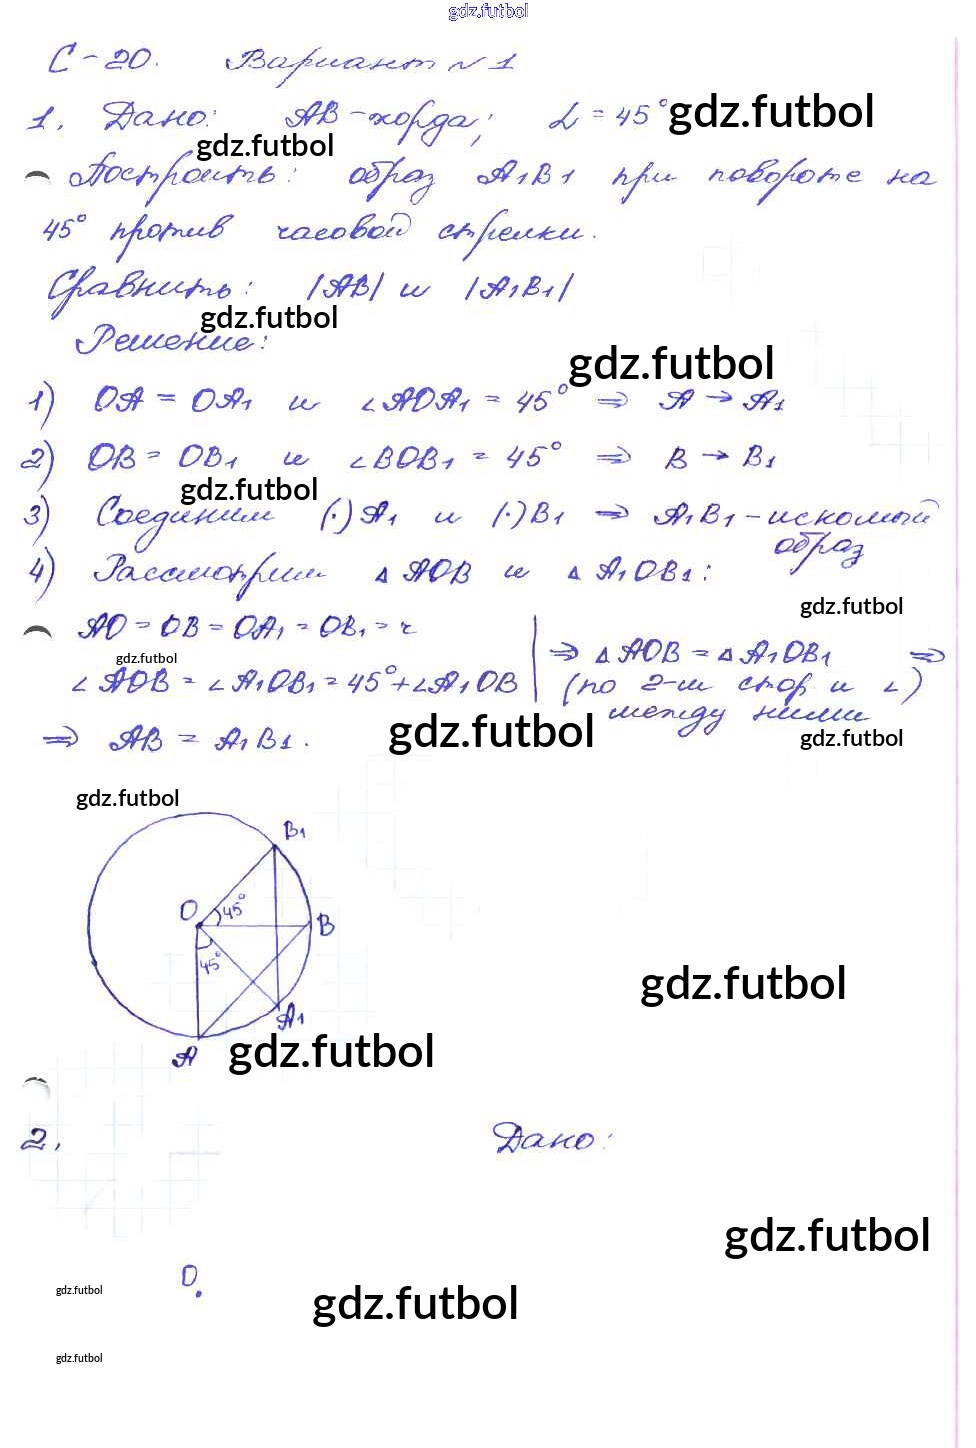 gdz.futbol
С-20. Вариант №1
1. Дано: АВ-хорда; α = 45° gdz.futbol
gdz.futbol
Построить: образ А1В1 при повороте на
45° против часовой стрелки.
Сравнить: |АВ| и |А1В1|
gdz.futbol
Решение:
gdz.futbol
1) ОА = ОА1 и ∠АОА1 = 45° ⇒ А → А1
2) ОВ = ОВ1 и ∠ВОВ1 = 45° ⇒ В → В1
gdz.futbol
3) Соединим (·)А1 и (·)В1 ⇒ А1В1 - искомый
образ
4) Рассмотрим △АОВ и △А1ОВ1:
gdz.futbol
АО = ОВ = ОА1 = ОВ1 = r
gdz.futbol
∠АОВ = ∠А1ОВ1 = 45° + ∠А1ОВ
⇒ △АОВ = △А1ОВ1 ⇒
(по 2-м стор. и ∠)
между ними
⇒ АВ = А1В1.
gdz.futbol
gdz.futbol
gdz.futbol
В1
О 45° В
45°
А1
А
gdz.futbol
gdz.futbol
2. Дано:
gdz.futbol
О
gdz.futbol
gdz.futbol
gdz.futbol